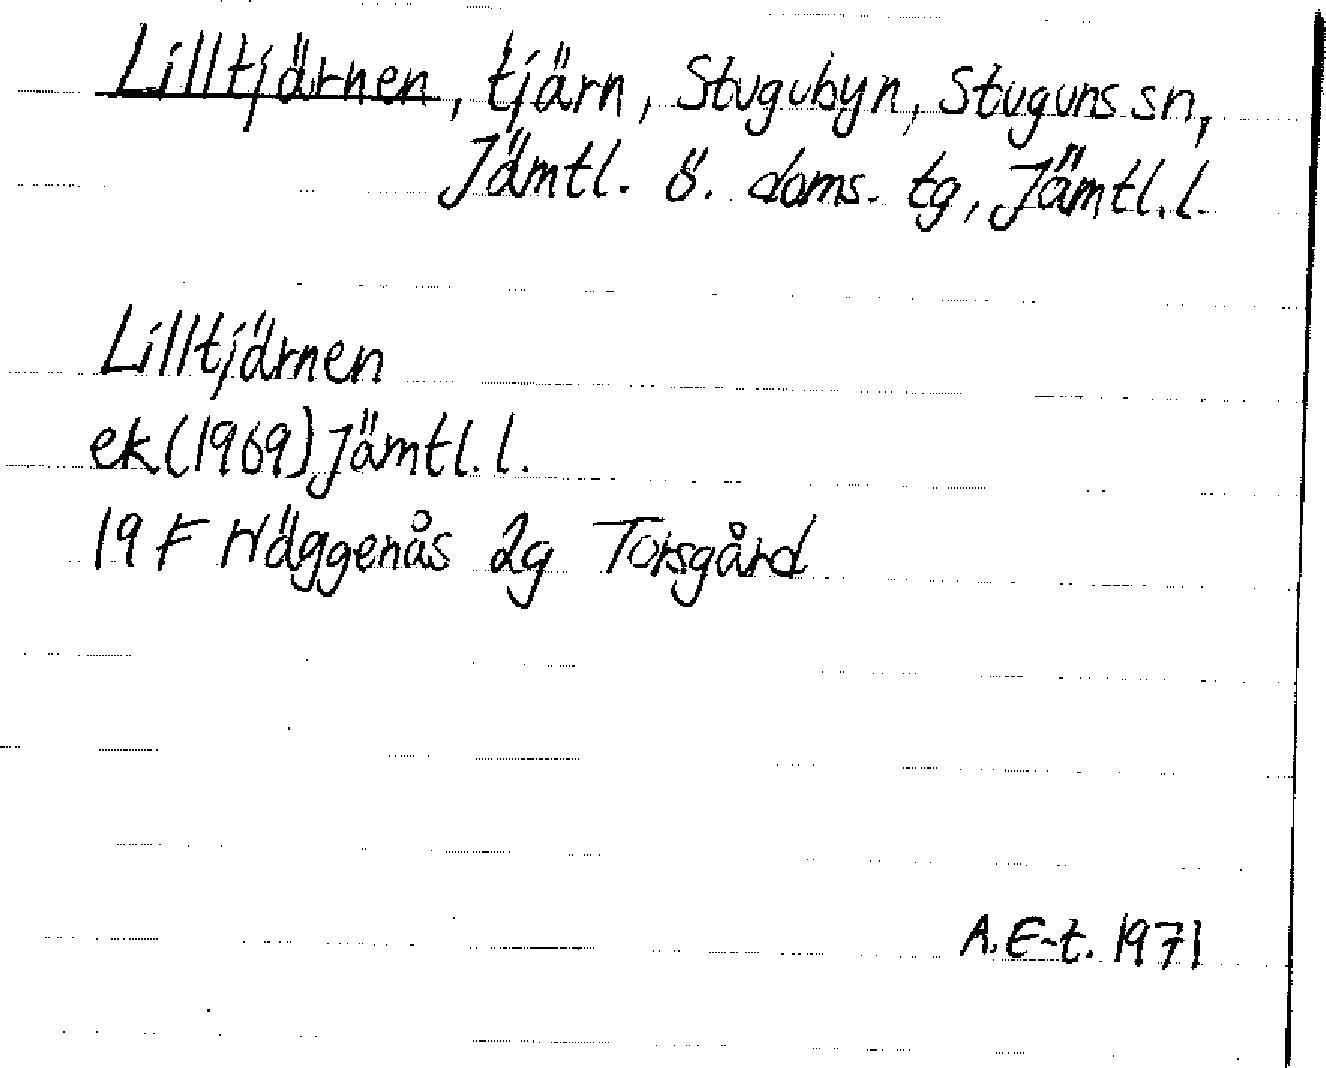 Lilltjärnen, tjärn, Stugubyn, Stuguns sn,
Jämtl. ö. doms. tg, Jämtl. l.
Lilltjärnen
ek (1969) Jämtl. l.
19 F Häggenås 2g Torsgård
A. E-t. 1971